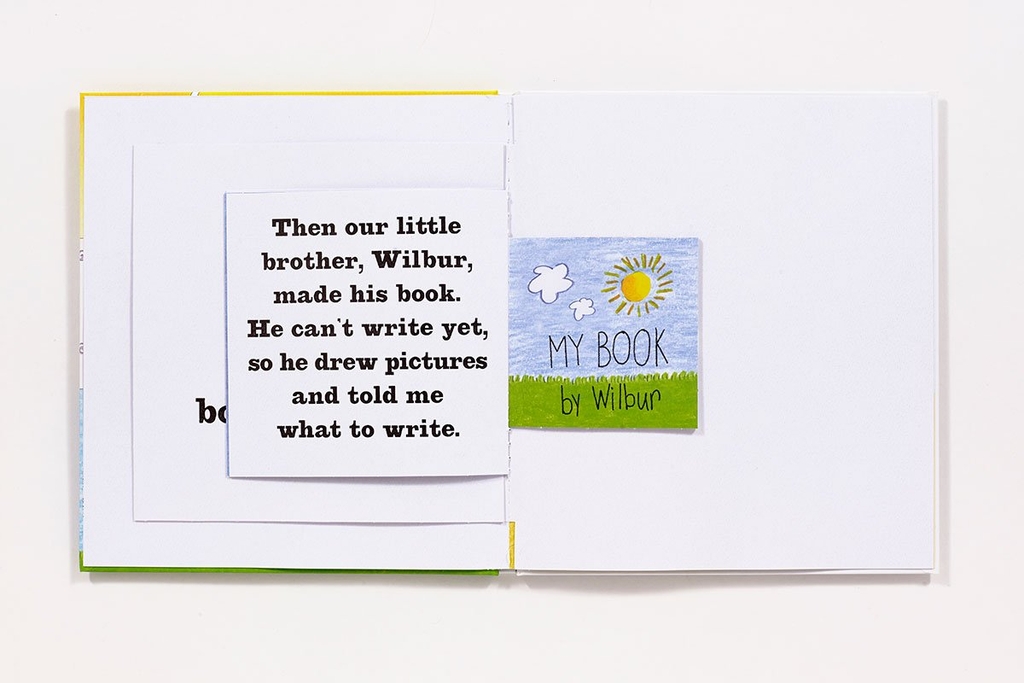 Then our little
brother, Wilbur,
made his book.
He can't write yet,
so he drew pictures
and told me
what to write.
bo
MY BOOK
by Wilbur